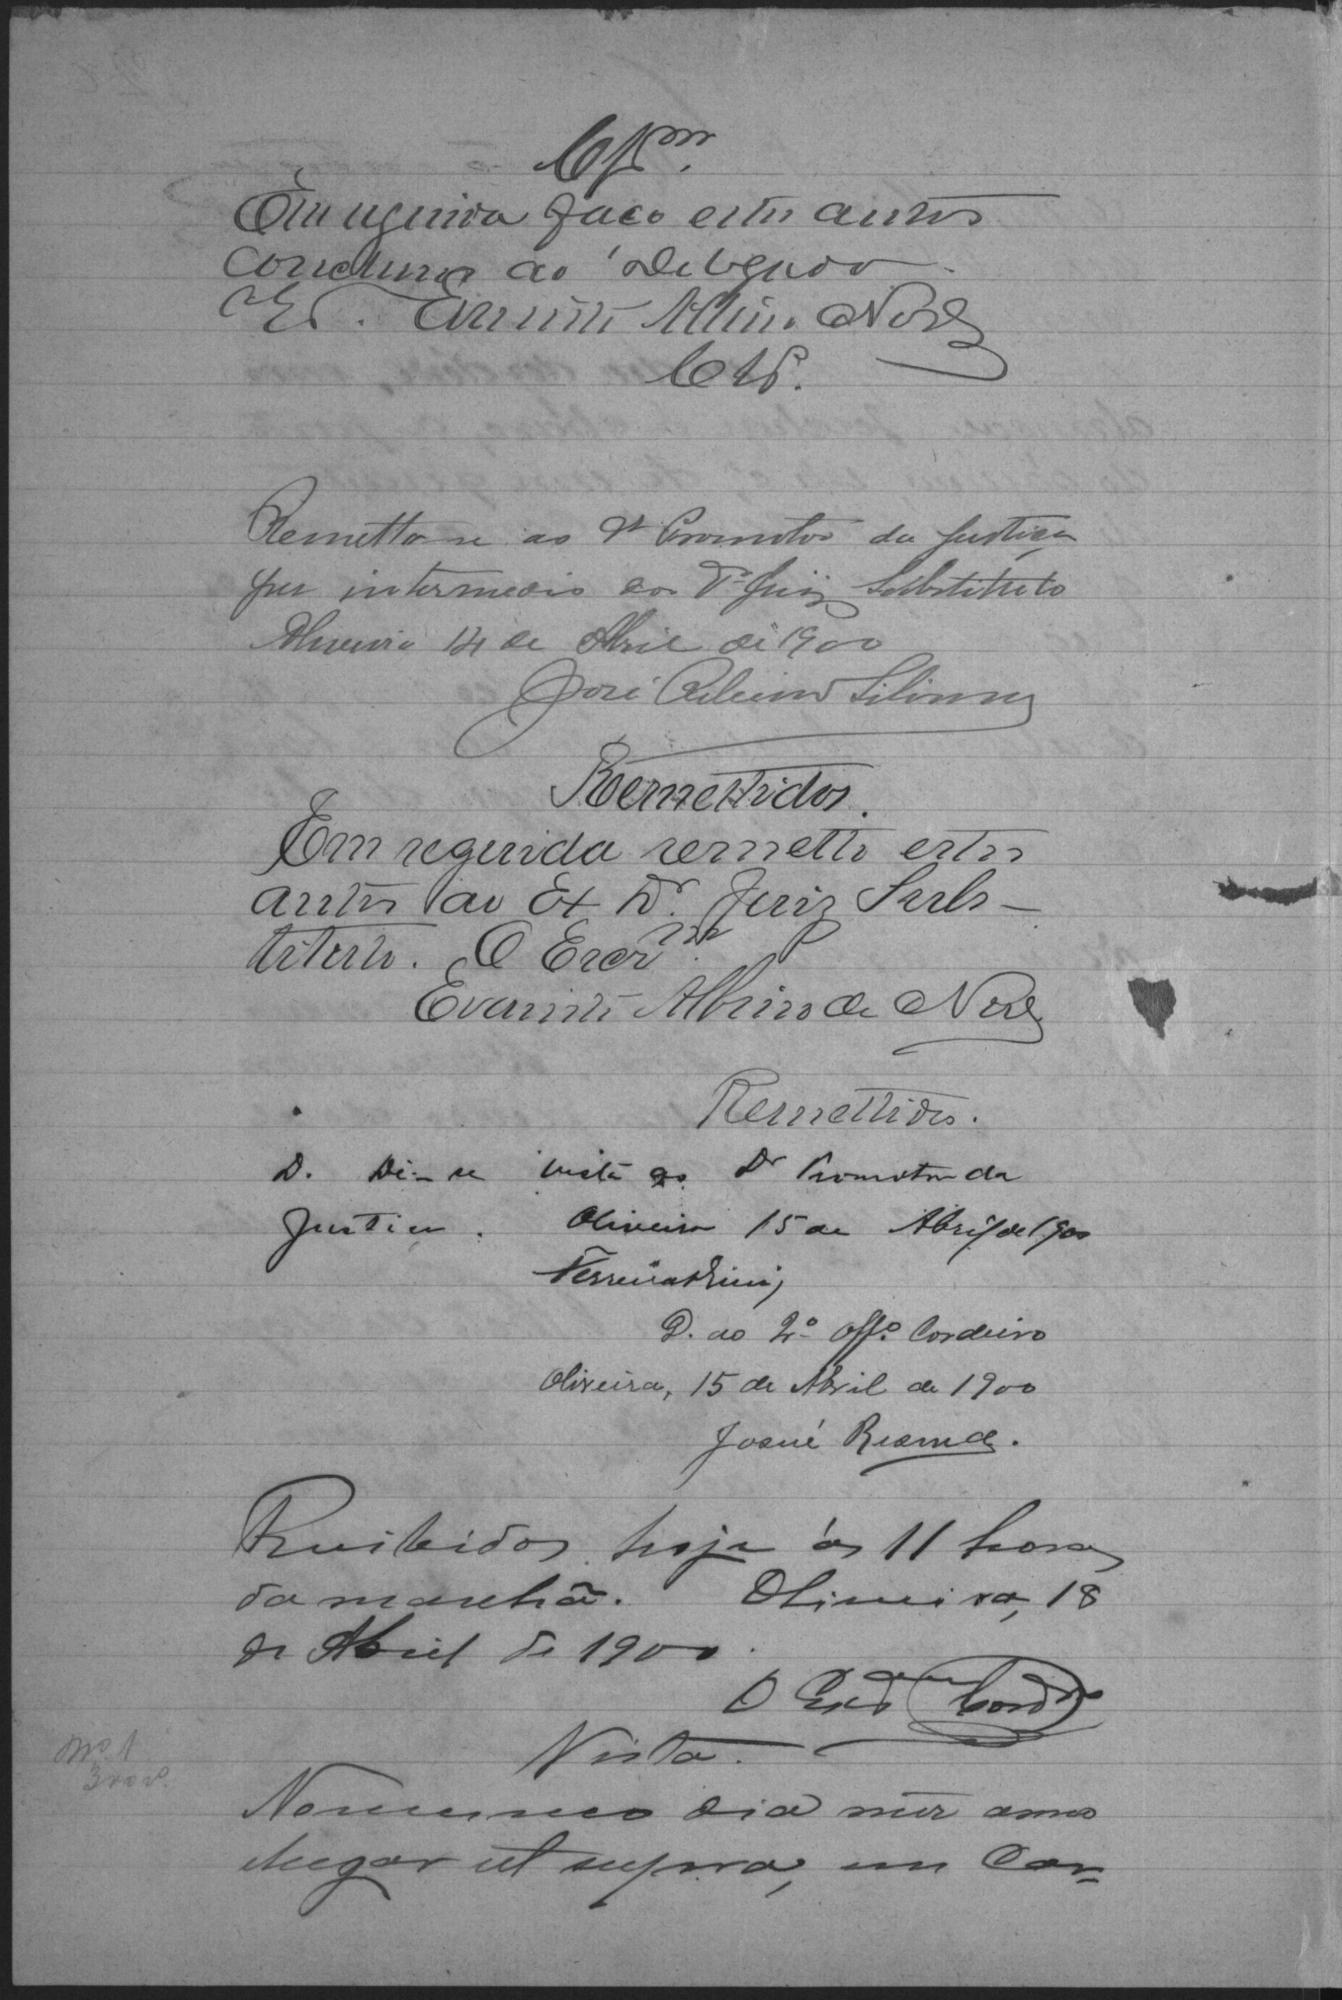 Clsm.
Em seguida faço estes autos
conclusos ao Delegado.
Ev. Evaristo Albino Nor
Cls.
Remetta-se ao Dr Promotor da Justiça
por intermedio do Dr Juiz Substituto
Oliveira 14 de Abril de 1900
José Ribeiro Silva
Remettidos.
Em seguida remetto estes
autos ao Ex Dr. Juiz Subs-
tituto. O Escr.m
Evaristo Albino de
Remettidos.
D. Dê-se vista ao Dr Promotor da
Justiça. Oliveira 15 de Abril de 1900
D. ao 2º Offº Cordeiro
Oliveira, 15 de Abril de 1900
Josué Resende.
Recibidos hoje ás 11 horas
da manhã. Oliveira, 18
de Abril de 1900.
O Escr Cordro
Vista.
No mesmo dia mez anno
e lugar ut supra, em Car-